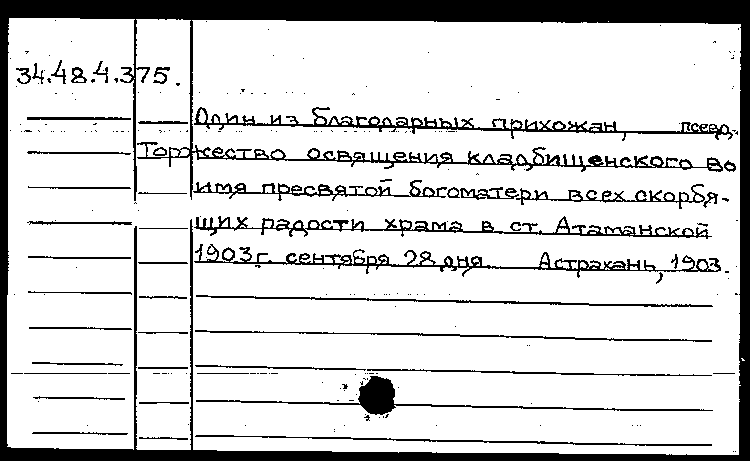 34.48.4.375.
Один из благодарных прихожан, псевд.
Торжество освящения кладбищенского во
имя пресвятой богоматери всех скорбя-
щих радости храма в ст. Атаманской
1903г. сентября 28 дня. Астрахань, 1903.